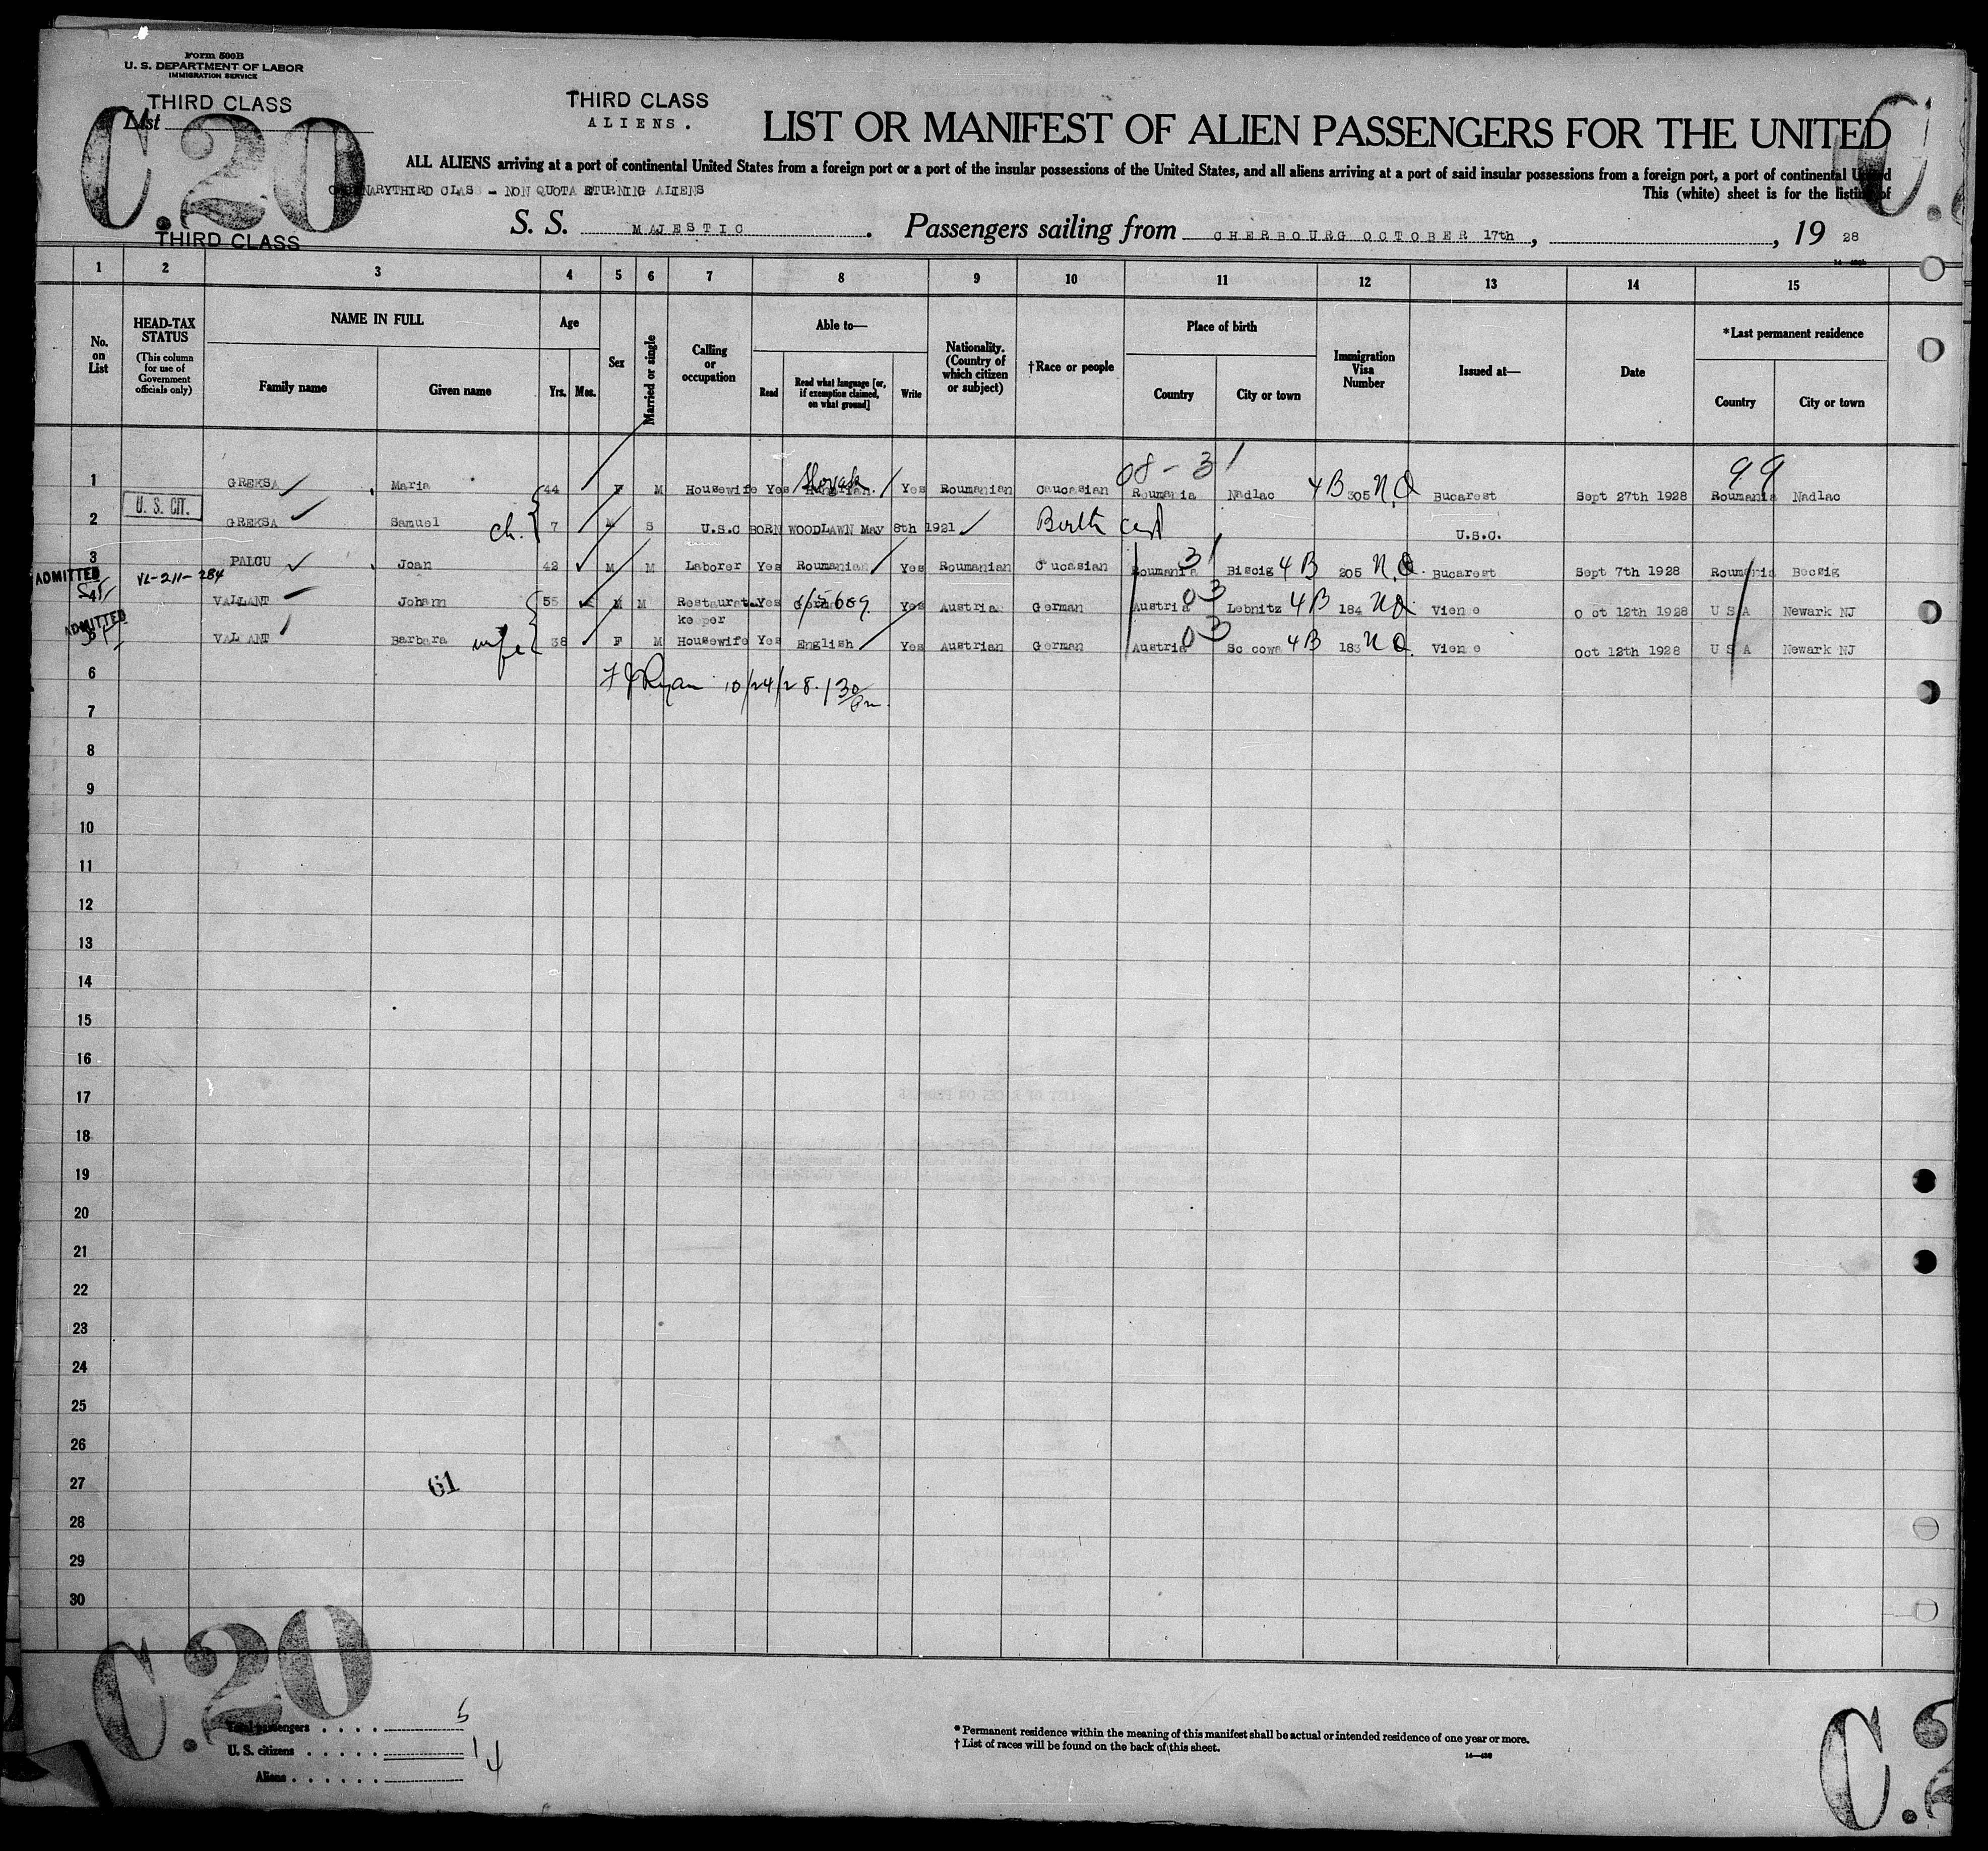 Form 500B
U. S. DEPARTMENT OF LABOR
IMMIGRATION SERVICE
THIRD CLASS
List
C.20
THIRD CLASS
ALIENS.
LIST OR MANIFEST OF ALIEN PASSENGERS FOR THE UNITED
ALL ALIENS arriving at a port of continental United States from a foreign port or a port of the insular possessions of the United States, and all aliens arriving at a port of said insular possessions from a foreign port, a port of continental United
THIRD CLAS - NON QUOTA ETURNING ALIENS
This (white) sheet is for the listing of
THIRD CLASS
S. S. MAJESTIC. Passengers sailing from CHERBOURG OCTOBER 17th, , 19 28
1 2 3 4 5 6 7 8 9 10 11 12 13 14 15
No. on List
HEAD-TAX STATUS
(This column for use of Government officials only)
NAME IN FULL
Family name
Given name
Age
Yrs. Mos.
Sex
Married or single
Calling or occupation
Able to—
Read
Read what language [or, if exemption claimed, on what ground]
Write
Nationality. (Country of which citizen or subject)
†Race or people
Place of birth
Country
City or town
Immigration Visa Number
Issued at—
Date
*Last permanent residence
Country
City or town
08-31 99
1 GREKSA Maria 44 F M Housewife Yes Slovak Yes Roumanian Caucasian Roumania Nadlac 4B 305 N.Q Bucarest Sept 27th 1928 Roumania Nadlac
U. S. CIT.
2 GREKSA Samuel ch. 7 M S U.S.C BORN WOODLAWN May 8th 1921 Birth cert U.S.C.
3 PALCU Joan 42 M M Laborer Yes Roumanian Yes Roumanian C ucasian Roumania 31 Biscig 4B 205 N.Q. Bucarest Sept 7th 1928 Roumania Bocsig
ADMITTED VL-211-284
4 VALLANT Johann 55 M M Restaurat keeper Yes Yes Austria German Austria 03 Lebnitz 4B 184 NQ Vien e O ct 12th 1928 U S A Newark NJ
ADMITTED
5 VAL ANT Barbara wife 38 F M Housewife Yes English Yes Austrian German Austria 03 4B 183 NQ. Vien e Oct 12th 1928 U S A Newark NJ
6 F J Ryan 10/24/28. 130 Pm.
7
8
9
10
11
12
13
14
15
16
17
18
19
20
21
22
23
24
25
26
27
61
28
29
30
C.20
Total passengers . . . . 5
U. S. citizens . . . . . 1
Aliens . . . . . . 4
* Permanent residence within the meaning of this manifest shall be actual or intended residence of one year or more.
† List of races will be found on the back of this sheet.
C.2